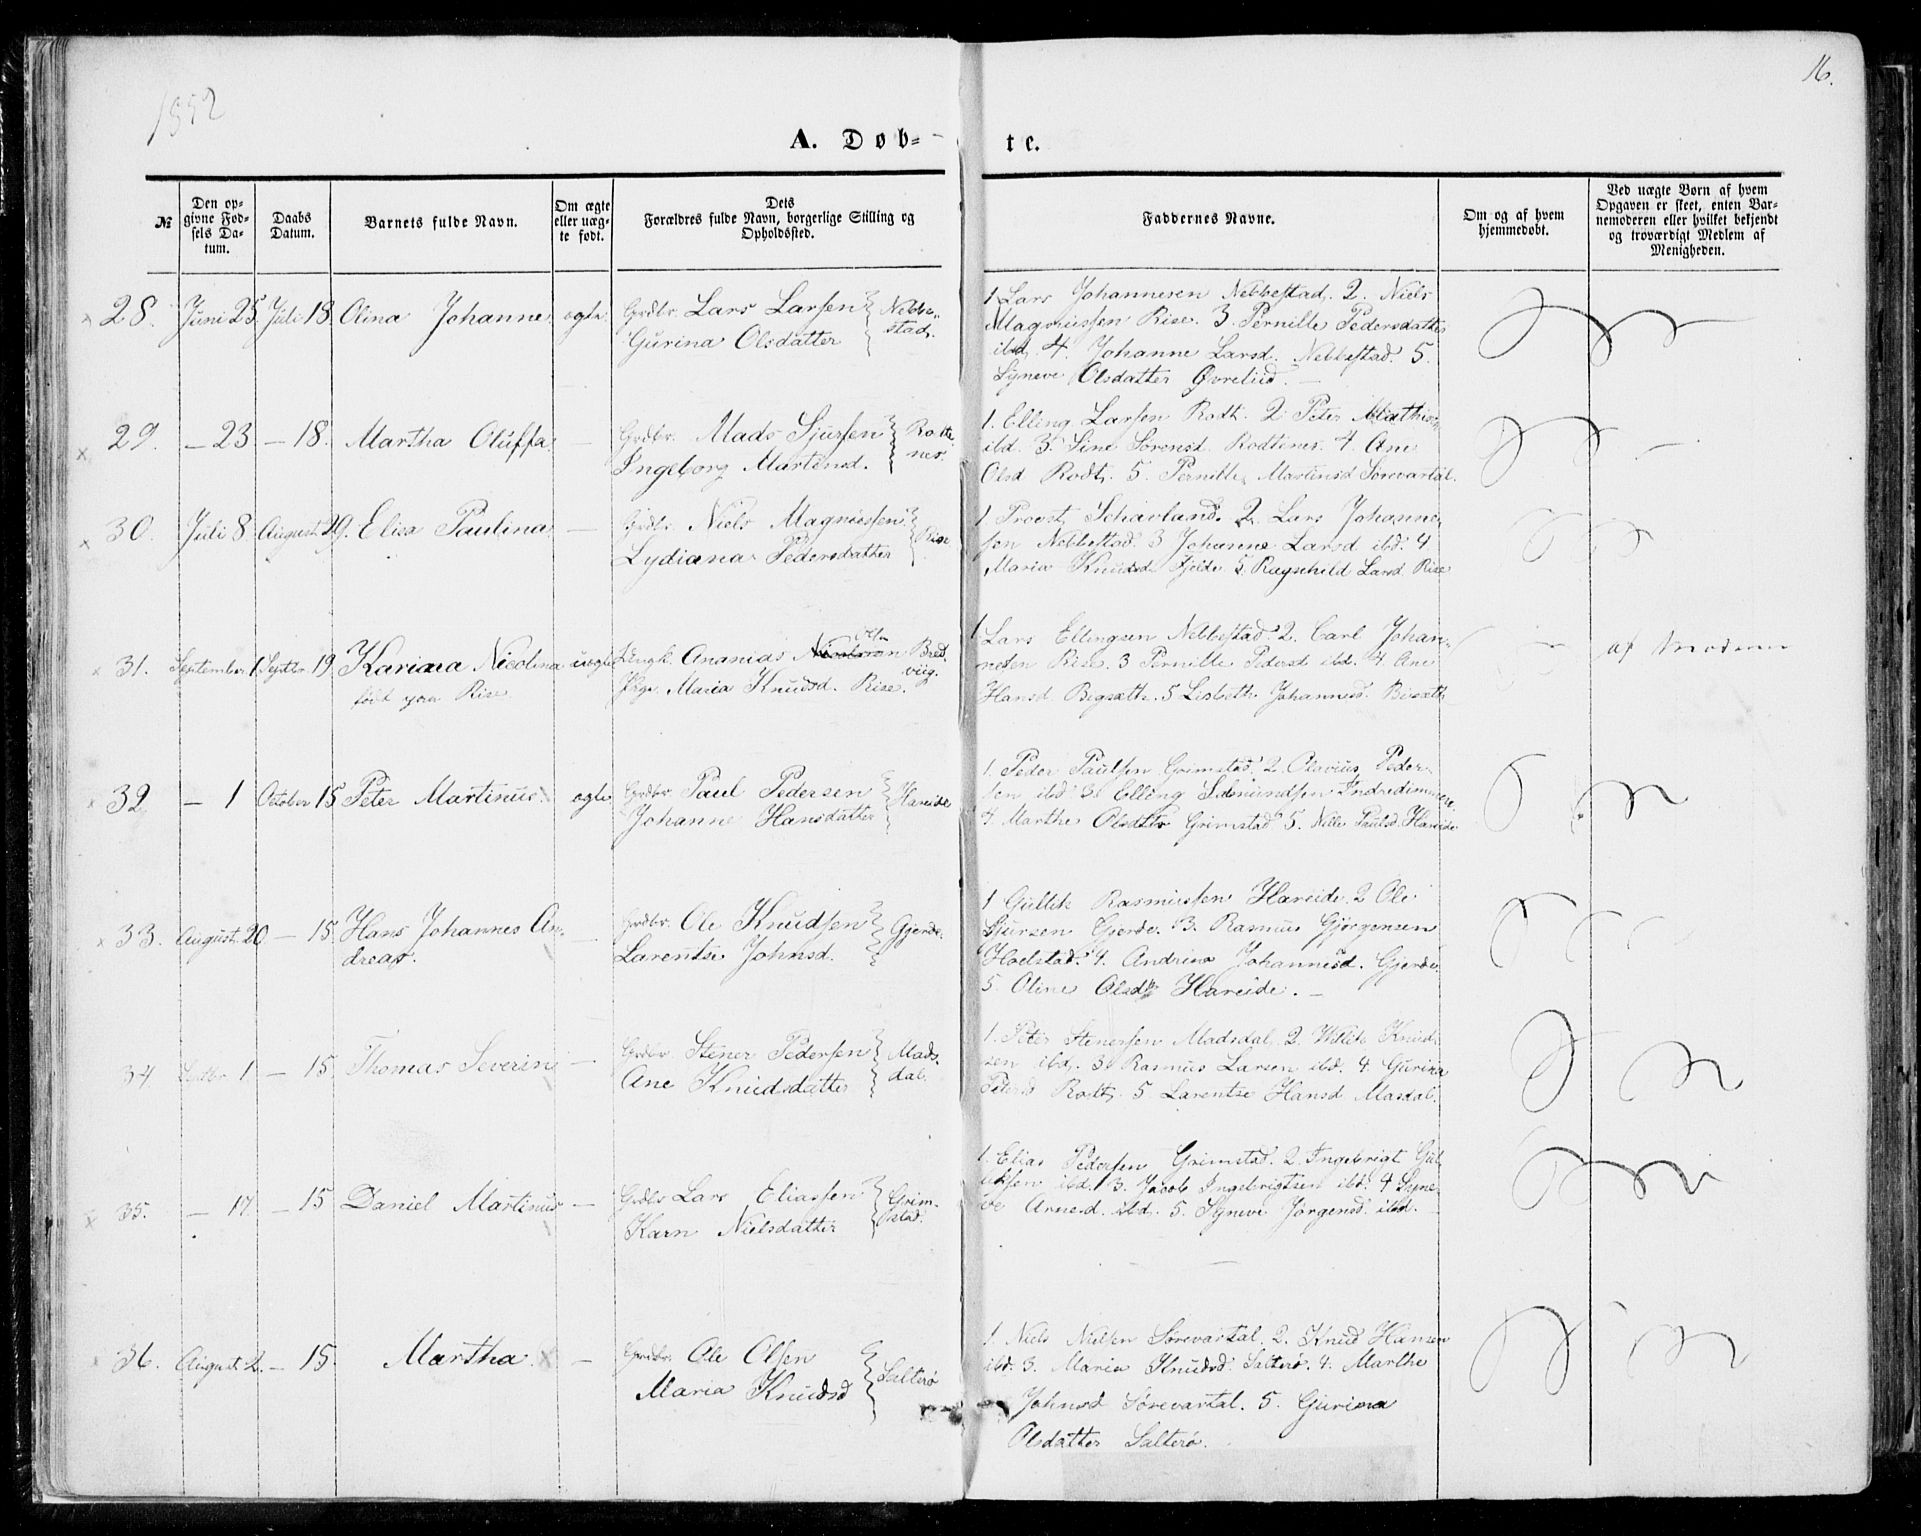 1852
16.
A. Døb-
te.
№
Den op-
givne Fød-
sels Da-
tum.
Daabs
Datum.
Barnets fulde Navn.
Om ægte
eller uæg-
te født.
Dets
Forældres fulde Navn, borgerlige Stilling og
Opholdssted.
Faddernes Navne.
Om og af hvem
hjemmedøbt.
Ved uægte Børn af hvem
Opgaven er skeet, enten Bar-
nemoderen eller hvilket bekjendt
og troværdigt Medlem af
Menigheden.
28. Juni 25. Juli 18. Olina Johanne ægte Grdbr. Lars Larsen Nebbe-
Gurina Olsdatter stad.
1 Lars Johannesen Nebbestad. 2. Niels
Magnussen Rise. 3. Pernille Pedersdatter
ibd. 4. Johanne Larsd. Nebbestad. 5.
Syneve Olsdatter Øvrelid. —
29. — 23 — 18. Martha Oluffa. — Grdbr. Mads Sjursen
Ingeborg Martinsd.
1. Elling Larsen Rodt. 2 Peter
ibd. 3. Sine Sørensd. 4. Ane
Olsd Rodt. 5. Pernille Martinsd Sørevartal.
30. Juli 8. August 29. Elisa Paulina — Grdbr. Niels Magnussen Rise
Lydiana Pedersdatter
1 Provst 2. Lars Johanne-
sen Nebbestad. 3 Johanne Larsd ibd. 4
Maria Knudsd Fjelde 5 Ragnhild Larsd. Rise
31. September 1. Septbr. 19. Karina Nicolina uægte Ungk. Ananias Bred-
født paa Rise Maria Knudsd. Rise. viig.
1 Lars Ellingsen Nebbestad. 2. Carl Johan-
nesen Rise. 3 Pernille Pedersd ibd. 4 Ane
Hansd 5 Lisbeth Johannesd.
af Moderen
32. — 1 October 15 Peter Martinus. ægte Grdbr Paul Pedersen Hareide
Johanne Hansdatter
1. Peder Paulsen Grimstad. 2. Olavius Peder-
sen ibd 3. Elling
4. Marthe Olsdttr Grimstad 5. Paulsd. Hareide
33. August. 20 — 15. Hans Johannes An- — Grdbr. Ole Knudsen Gjerde.
dreas. Larentse Johnsd.
1 Gullik Rasmussen Hareide. 2 Ole
Sjursen Gjerde. 3. Rasmus Gjørgensen
4. Andrina Johannesd. Gjerde
5. Oline Olsdtr Hareide. —
34 Septbr 1 — 15. Thomas Severin — Grdbr. Stener Pedersen Mads-
Ane Knudsdatter dal.
1. Peter Stenersen Madsdal. 2. Knud-
sen ibd. 3. Rasmus Larsen ibd. 4. Gurina
Petersd Rodt. 5. Larentse Hansd Masdal.
35. — 17. — 15 Daniel Martinus — Grdbr Lars Eliassen Grim-
Karn Nielsdatter stad.
1. Elias Pedersen Grimstad. 2. Ingebrigt Gul-
liksen ibd. 3. Jacob Ingebrigtsen ibd. 4 Syne-
ve Arnesd. ibd. 5. Syneve Jørgensd. ibd.
36. August. 2. — 15. Martha — Grdbr. Ole Olsen Salterø
Maria Knudsd
1. Niels Nielsen Sørevartal. 2. Knud Hansen
ibd. 3. Maria Knudsd. Salterø. 4. Marthe
Johnsd Sørevartal. 5. Gurina
Olsdatter Salterø.